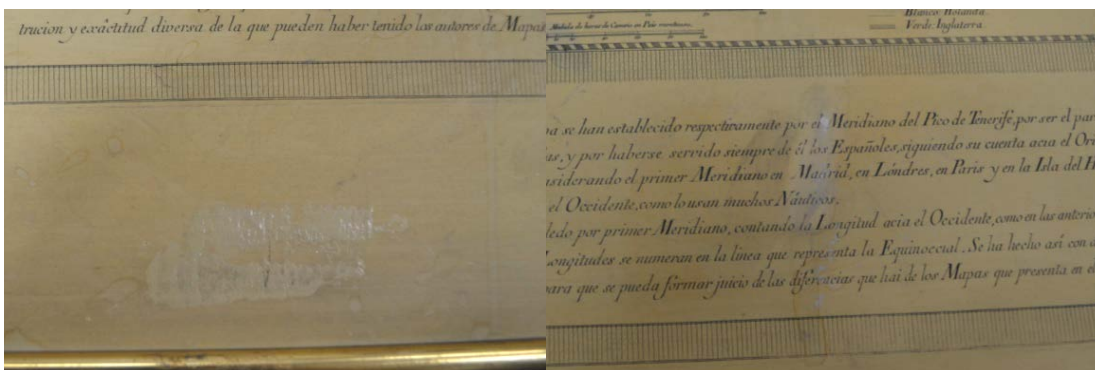 trucion y exâctitud diversa de la que pueden haber tenido los autores de Mapas
de horas de Camino en Pais montuoso.
Blanco. Holanda.
Verde. Inglaterra.
pa se han establecido respectivamente por el Meridiano del Pico de Tenerife, por ser el par
as, y por haberse servido siempre de él los Españoles, siguiendo su cuenta acia el Ori
nsiderando el primer Meridiano en Madrid, en Lóndres, en Paris y en la Isla del H
el Occidente, como lo usan muchos Náuticos.
ledo por primer Meridiano, contando la Longitud acia el Occidente, como en las anterio
Longitudes se numeran en la linea que representa la Equinoccial. Se ha hecho así con
para que se pueda formar juicio de las diferencias que hai de los Mapas que presenta en el